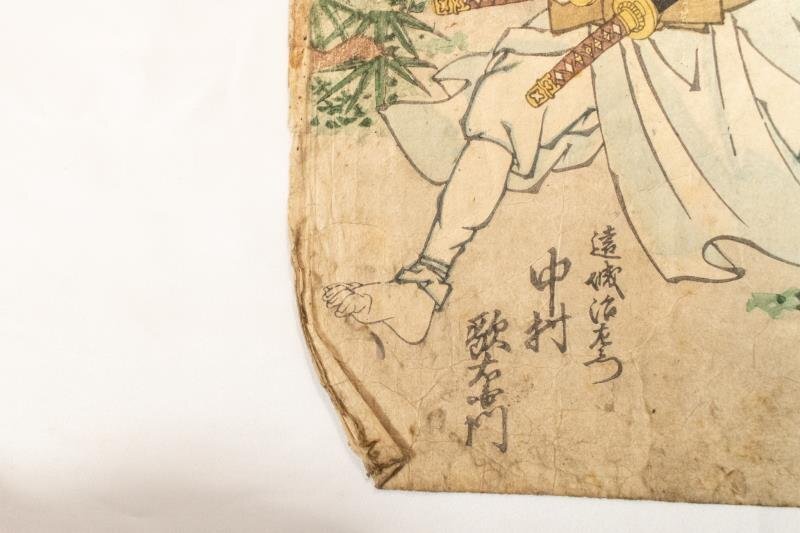 遠城治左エ門
中村
歌右衛門